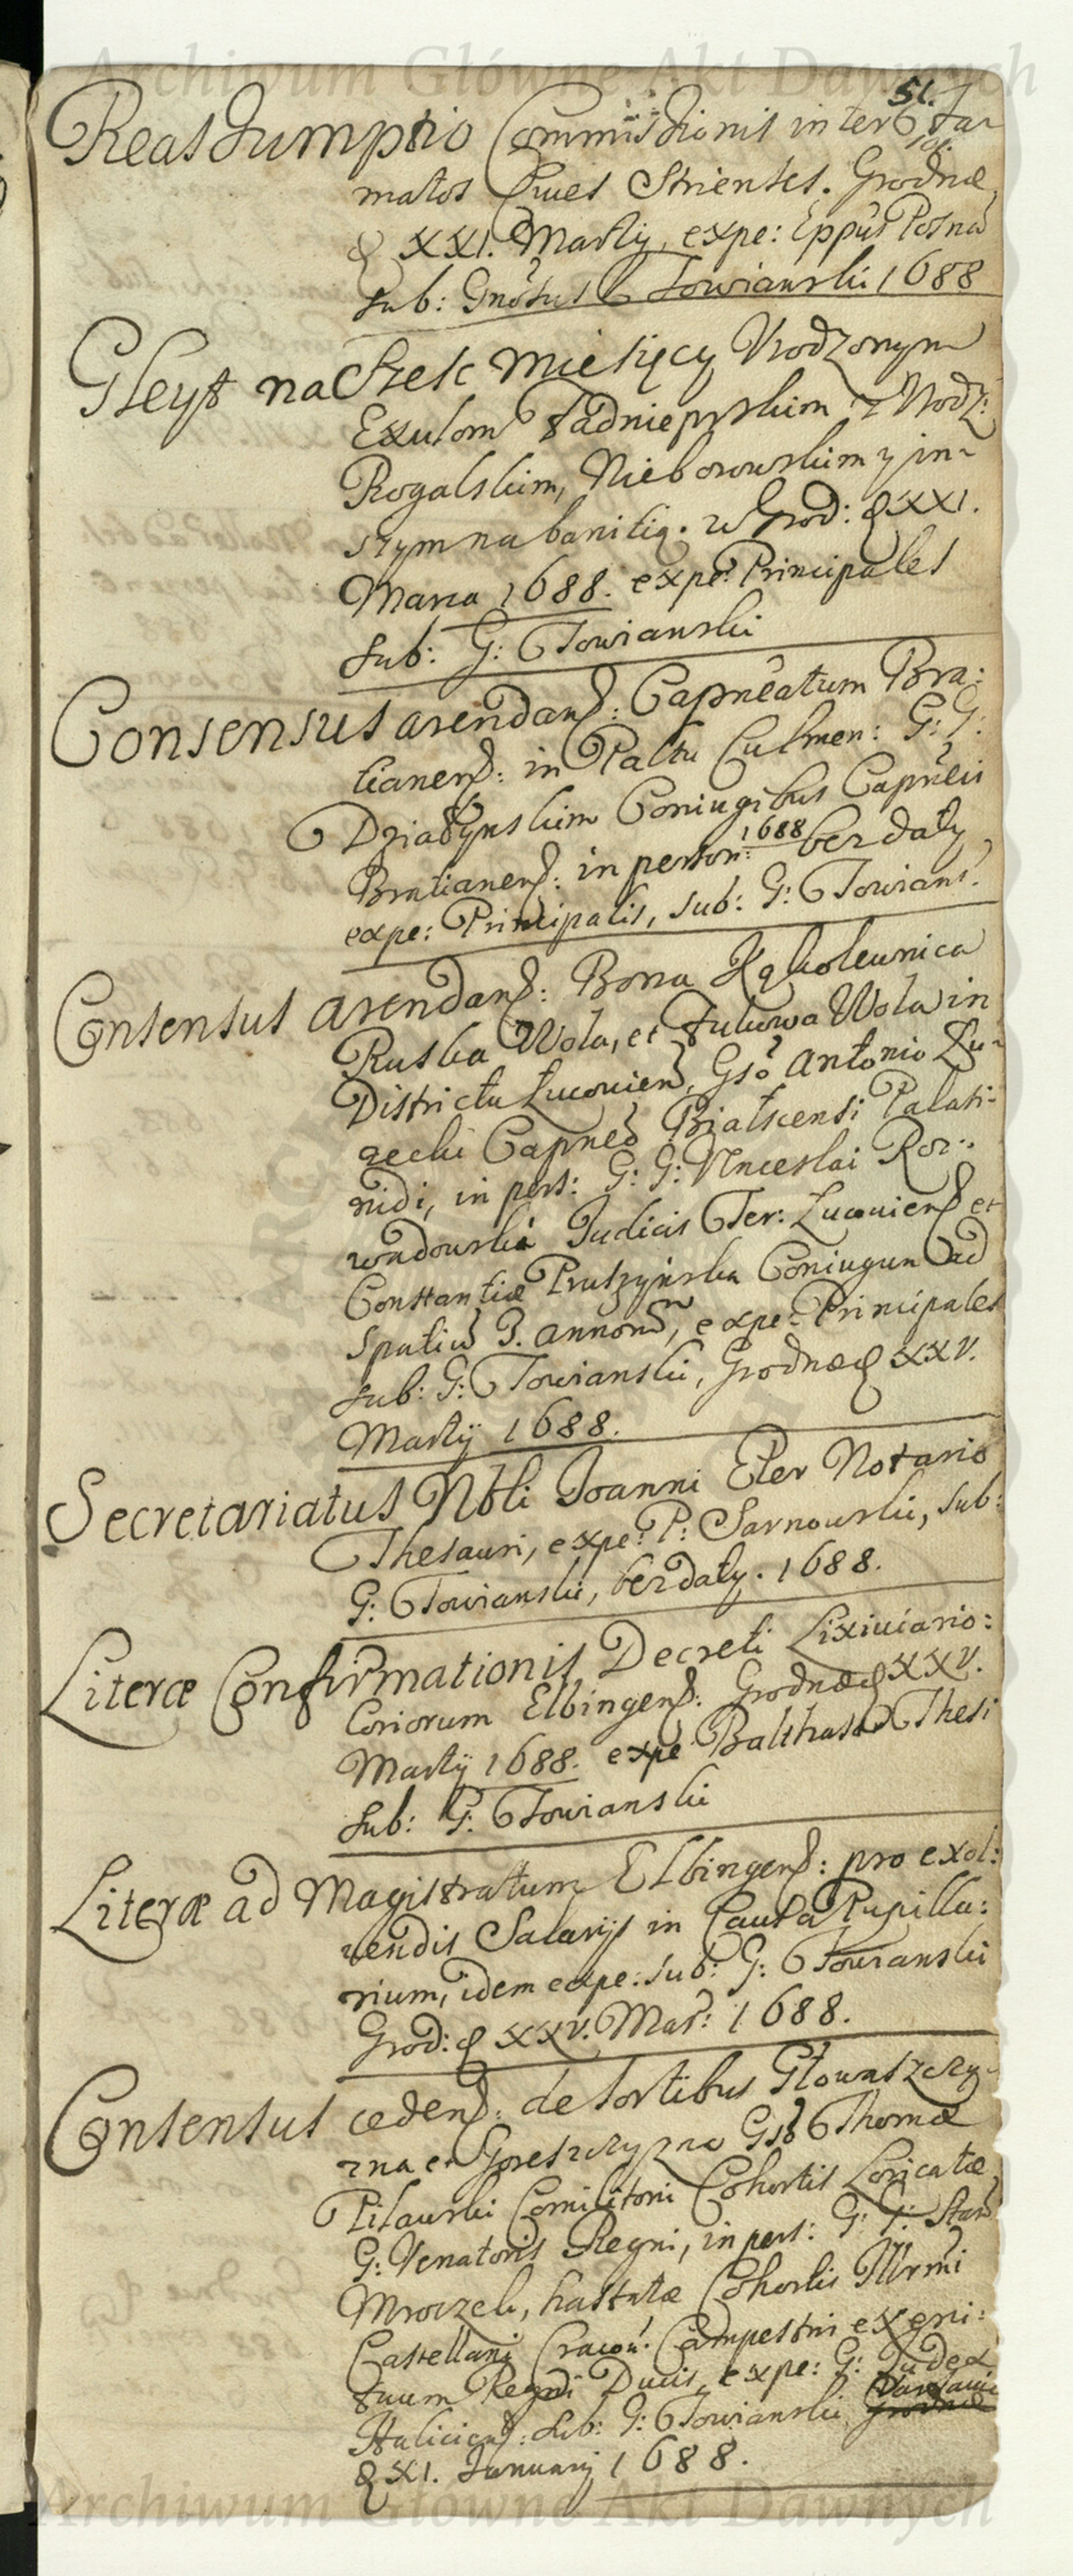 Archiwum Główne Akt Dawnych
51.
Reassumptio Commissionis inter Far-
matos Cives Strienses. Grodnæ
d XXI. Martij, expe: Eppus Posna
sub: Gnosus Towianski 1688
Gleyt na Szesc Miesięcy Vrodzonym
Exulom Zadnieprskim z Vrodz:
Rogalskim, Nieborowskim y in-
szym na banitią. w Grod: d XXI.
Marca 1688. expe: Principales
sub: G: Towianski
Consensus arendand: Capneatum Bra:
tianens: in Paltu Culmen: G: G:
Dzialynskim Coniugibus Capneis
Bratianens: in person: 1688 bez daty
expe: Principalis, sub: G: Towians:
Consensus arendand: Bona Kąkolewnica
Ruska Wola, et Zukowa Wola in
Districtu Lucovien, Gso Antonio Lu-
zecki Capneo Palati-
nidi, in pers: G: G: Venceslai Roz-
wadowski Judicis Ter: Lucoviens et
Constantiæ Pruszynska Coniugum ad
spatiu 3. annoru, expe: Principales
sub: G: Towianski, Grodnæ d XXV.
Martij 1688.
Secretariatus Nbli Joanni Eler Notario
Thesauri, expe: P: Sarnowski, sub:
G: Towianski, bez daty. 1688.
Literæ Confirmationis Decreti Lixiviario:
Coriorum Elbingens: Grodnæ d XXV.
Martij 1688. expe Balthasar Thesi
sub: G: Towianski
Literæ ad Magistratum Elbingens: pro exol:
vendis Salarijs in Causa Pupilla:
rium, idem expe: sub: G: Towianski
Grod: d XXV. Mar: 1688.
Consensus cedend: de sortibus Głowaszczy-
zna et Goreszczyzna Gso Thomæ
Pilawski Comilitoni Cohortis Loricatæ
G: Venatoris Regni, in pers: G: G: Stan
Mroczek, hastatæ Cohortis Illrmi
Castellani Cracov: Campestri exerci:
tuum Regni Ducis, expe: G: Judex
Haliciens: sub: G: Towianski Varsaviæ
Grodnæ
d XI. January 1688.
Archiwum Główne Akt Dawnych